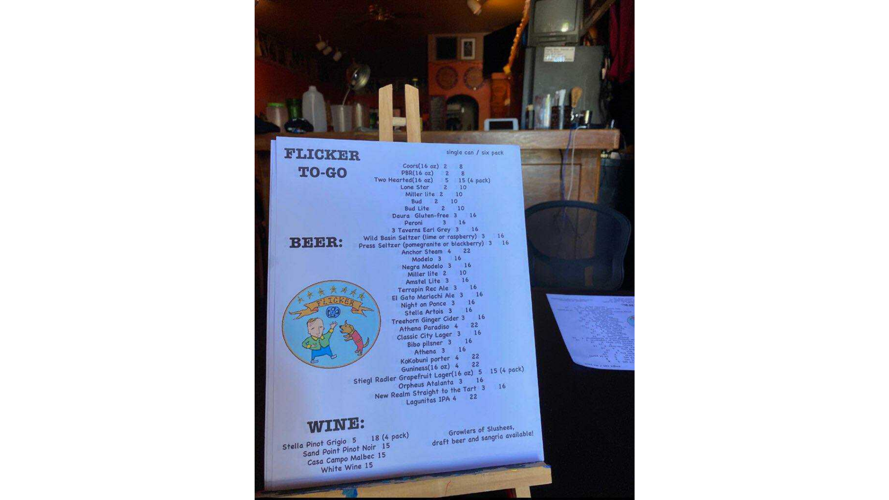 FLICKER
TO-GO
single can / six pack
Coors(16 oz) 2 8
PBR(16 oz) 2 8
Two Hearted(16 oz) 5 15 (4 pack)
Lone Star 2 10
Miller lite 2 10
Bud 2 10
Bud Lite 2 10
Daura Gluten-free 3 16
Peroni 3 16
3 Taverns Earl Grey 3 16
Wild Basin Seltzer (lime or raspberry) 3 16
BEER:
Press Seltzer (pomegranite or blackberry) 3 16
Anchor Steam 4 22
Modelo 3 16
Negra Modelo 3 16
Miller lite 2 10
Amstel Lite 3 16
Terrapin Rec Ale 3 16
El Gato Mariachi Ale 3 16
Night on Ponce 3 16
Stella Artois 3 16
Treehorn Ginger Cider 3 16
Athena Paradiso 4 22
Classic City Lager 3 16
Bibo pilsner 3 16
Athena 3 16
KoKobuni porter 4 22
Guniness(16 oz) 4 22
Stiegl Radler Grapefruit Lager(16 oz) 5 15 (4 pack)
Orpheus Atalanta 3 16
New Realm Straight to the Tart 3 16
Lagunitas IPA 4 22
FLICKER
WINE:
Stella Pinot Grigio 5 18 (4 pack)
Sand Point Pinot Noir 15
Casa Campo Malbec 15
White Wine 15
Growlers of Slushees,
draft beer and sangria available!